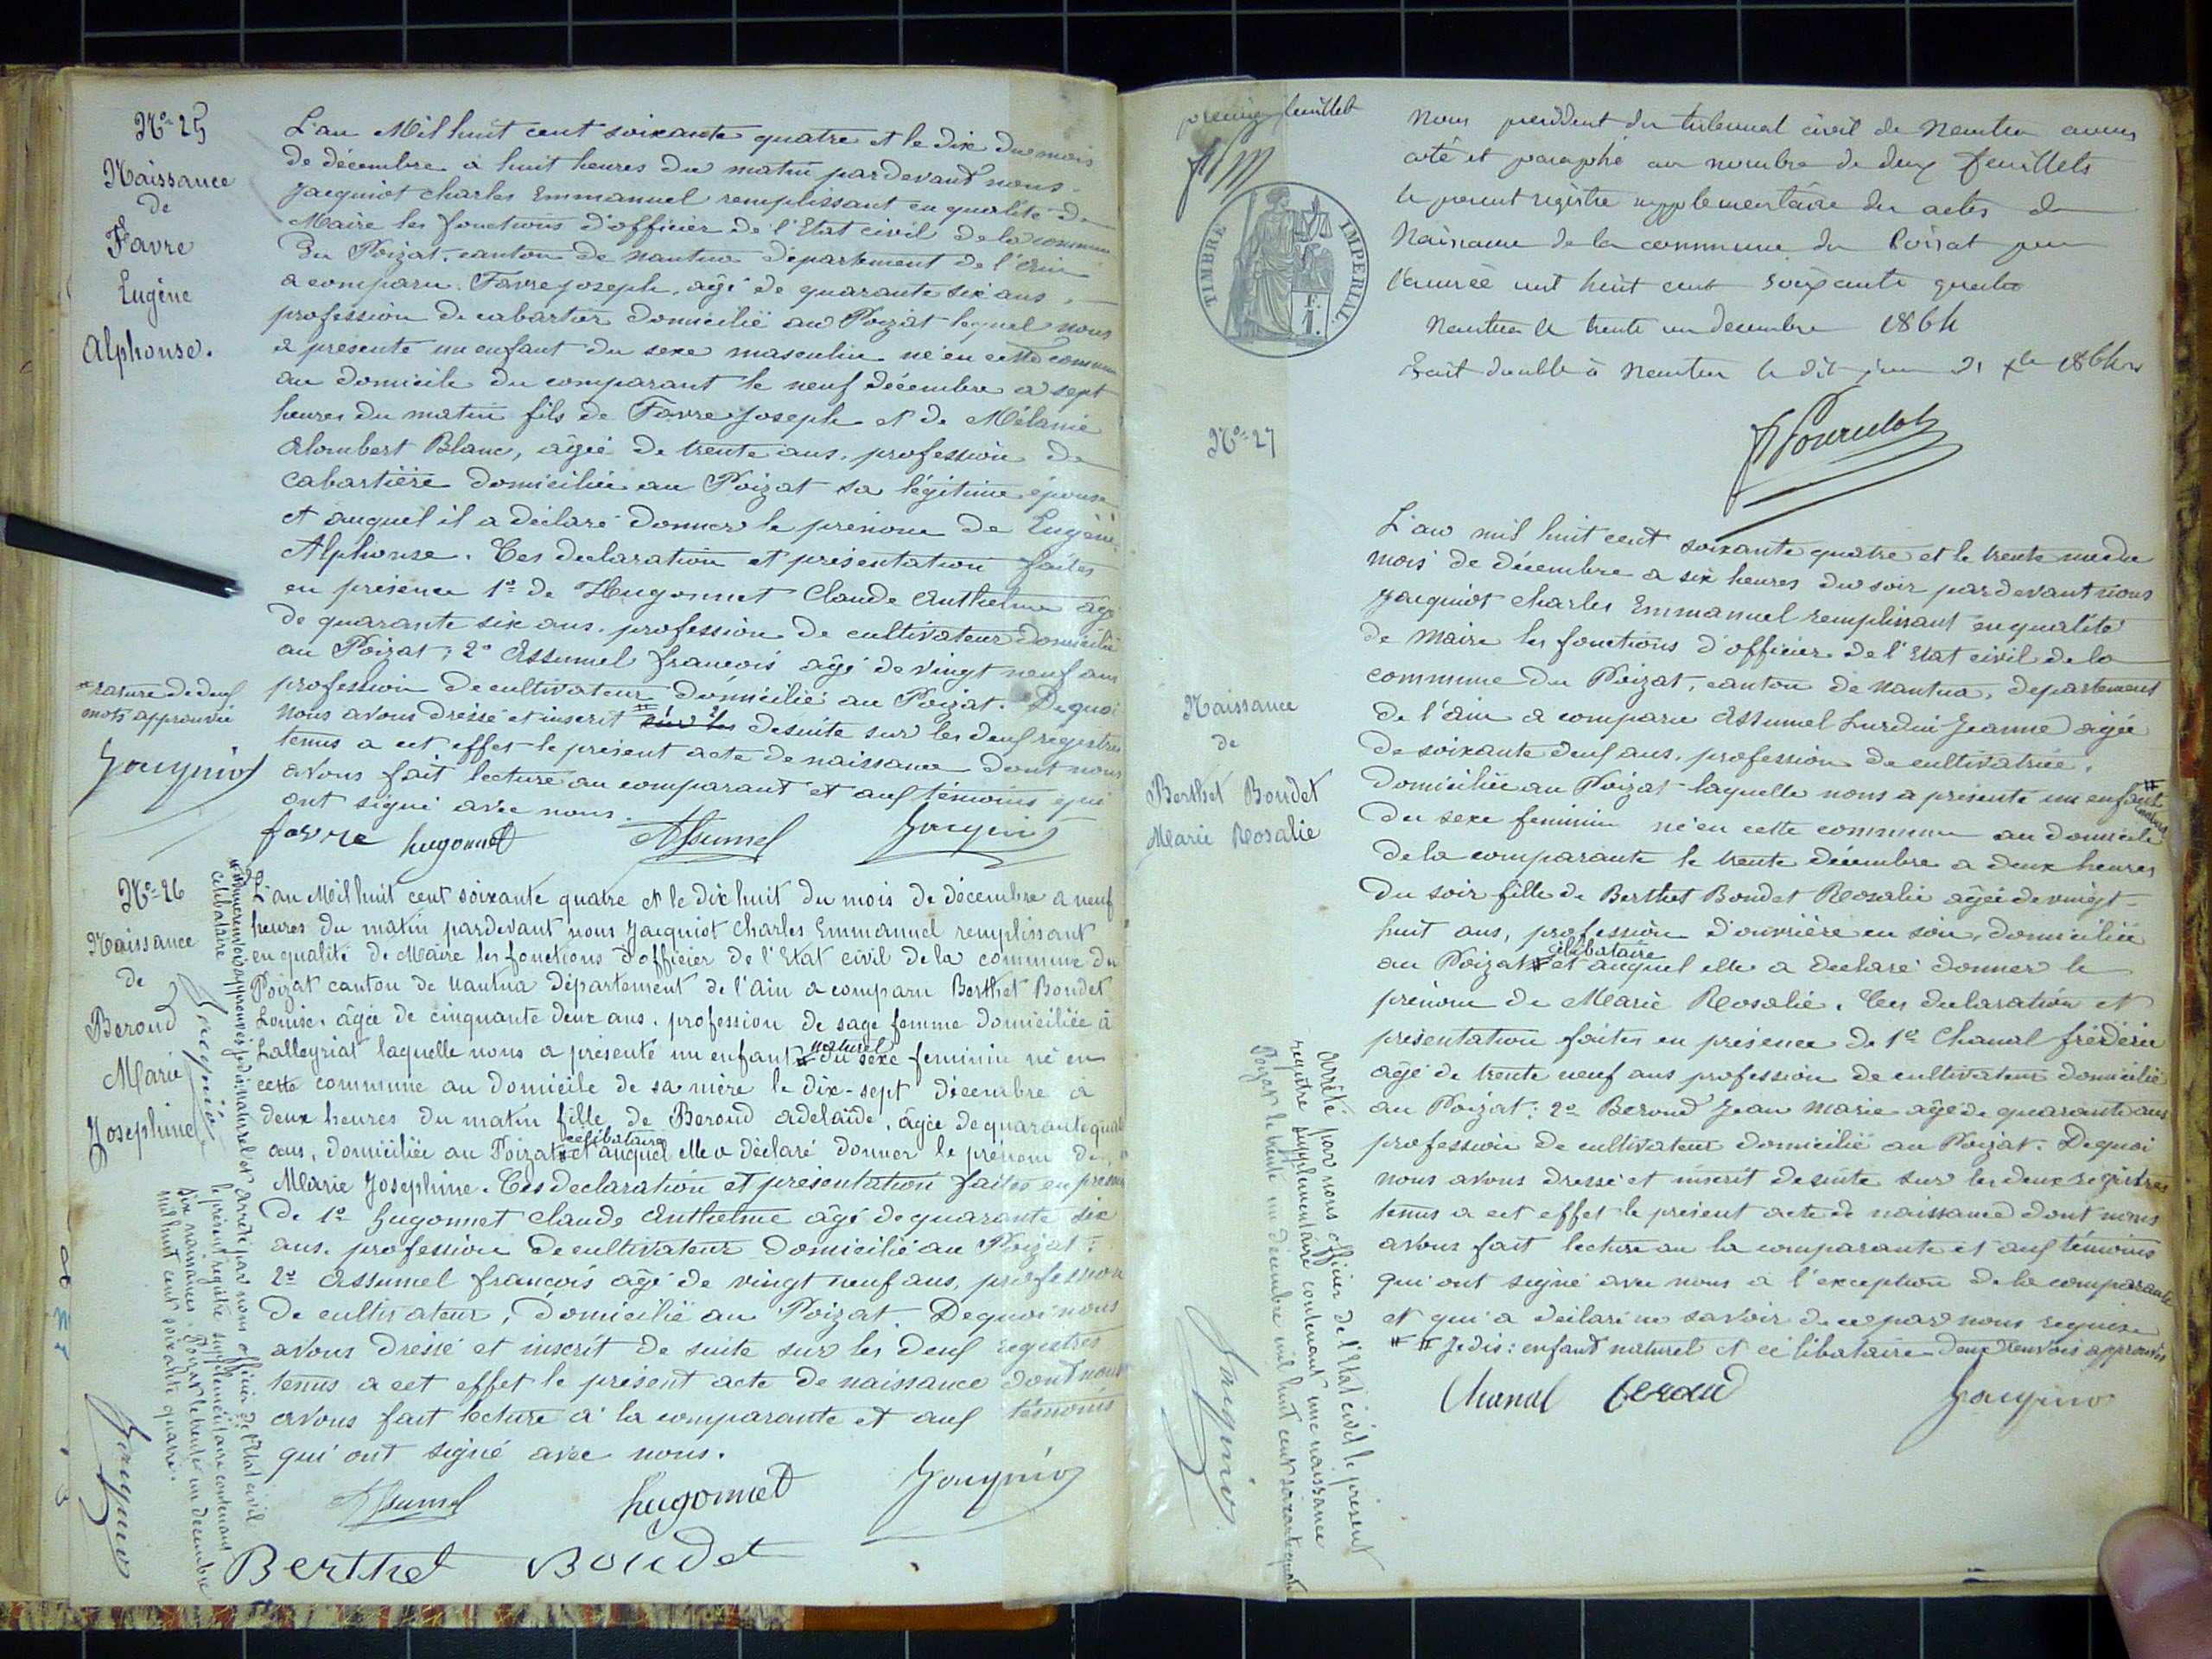 N°- 25
Naissance
de
Favre
Eugène
Alphonse.
L'an Mil huit cent soixante quatre et le dix du mois
de décembre à huit heures du matin pardevant nous
Jacquiot Charles Emmanuel remplissant en qualité de
Maire les fonctions d'officier de l'Etat civil de la commune
Du Poizat, canton de nantua département de l'Ain
a comparu Favre joseph, agé de quarante six ans,
profession de cabartier domicilié au Poizat lequel nous
a présenté un enfant du sexe masculin né en cette commune
au domicile du comparant le neuf décembre a sept
heures du matin fils de Favre Joseph et de Mélanie
Alombert Blanc, âgée de trente ans, profession de
Cabartière domiciliée au Poizat sa légitime épouse
et auquel il a déclaré donner le prénom de Eugène
Alphonse. Ces declaration et présentation faites
en présence 1° de Hugonnet Claude Anthelme âgé
de quarante six ans, profession de cultivateur domicilié
au Poizat; 2° Assumel françois âgé de vingt neuf ans
profession de cultivateur domicilié au Poizat. De quoi
nous avons dressé et inscrit # desuite sur les deux registres
tenus a cet effet le présent acte de naissance dont nous
avons fait lecture au comparant et aux témoins qui
ont signé avec nous.
# rature de deux
mots approuvée
Jacquiot
favre hugonnet Assumel Jacquiot
N°- 26
Naissance
de
Beroud
Marie
Josephine
L'an Mil huit cent soixante quatre et le dix huit du mois de décembre a neuf
heures du matin pardevant nous Jacquiot Charles Emmanuel remplissant
en qualité de Maire les fonctions d'officier de l'Etat civil de la commune du
Poizat canton de Nantua département de l'ain a comparu Berthet Bondet
Louise, âgée de cinquante deux ans, profession de sage femme domiciliée à
Lalleyriat laquelle nous a présenté un enfant # naturel du sexe feminin né en
cette commune au domicile de sa mère le dix-sept décembre à
deux heures du matin fille de Beroud adelaïde, âgée de quarante quat
ans, domiciliée au Poizat # celibataire et auquel elle a déclaré donner le prénom de
Marie Josephine. Ces declaration et présentation faites en présen
De 1° hugonnet Claude Anthelme âgé de quarante six
ans, profession de cultivateur domicilié au Poizat:
2° Assumel françois âgé de vingt neuf ans, profession
de cultivateur, domicilié au Poizat. De quoi nous
avons dressé et inscrit de suite sur les deux registres
tenus a cet effet le présent acte de naissance dont nous
avons fait lecture à la comparante et aux témoins
qui ont signé avec nous.
Assumel hugonnet Jacquiot
Berthet Bondet
celibataire
Jacquiot
Arrêté par nous officier de l'Etat civil
le présent registre supplémentaire contenant
six naissances. Poizat le trente un décembre
mil huit cent soixante quatre.
Jacquiot
premier feuillet
TIMBRE IMPERIAL
Nous président du tribunal civil de Nantua avons
coté et paraphé au nombre de deux feuillets
le présent registre supplementaire des actes de
Naissance de la commune du Poizat pour
l'année mil huit cent soixante quatre
Nantua le trente un decembre 1864
Fait double à Nantua le dit jour 31 Xbre 1864
N°- 27
Naissance
de
Berthet Bondet
Marie Rosalie
L'an mil huit cent soixante quatre et le trente un du
mois de décembre a six heures du soir pardevant nous
Jacquiot Charles Emmanuel remplissant en qualité
de Maire les fonctions d'officier de l'Etat civil de la
commune du Poizat, canton de nantua, departement
de l'ain a comparu Assumel Lurdin Jeanne agée
de soixante deux ans, profession de cultivatrice,
Domiciliée au Poizat laquelle nous a présenté un enfant #
du sexe feminin né en cette commune au domicile
de la comparante le trente décembre a deux heures
du soir fille de Berthet Bondet Rosalie âgée de vingt-
huit ans, profession d'ouvrière en soie, domiciliée
au Poizat # célibataire et auquel elle a declaré donner le
prénom de Marie Rosalie. Ces declaration et
présentation faites en présence de 1° Chanal fréderic
agé de trente neuf ans profession de cultivateur domicilié
au Poizat: 2° Beroud Jean Marie âgé de quarante ans
profession de cultivateur domicilié au Poizat. De quoi
nous avons dressé et inscrit desuite sur les deux registres
tenus a cet effet le présent acte de naissance dont nous
avons fait lecture au la comparante et aux témoins
qui ont signé avec nous a l'exception de la comparante
et qui a déclaré ne savoir de ce par nous requise
# # Je dis: enfant naturel et célibataire deux renvois approuvés
Chanal beroud Jacquiot
Arrêté par nous officier de l'Etat civil le présent
registre supplementaire contenant une naissance
Poizat le trente un decembre mil huit cent soixante quatre
Jacquiot